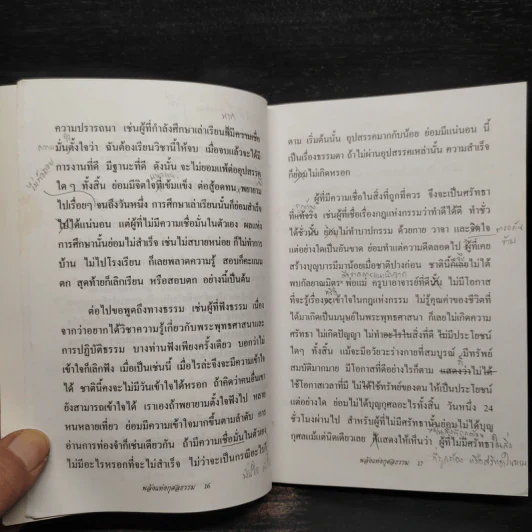 ความปรารถนา เช่นผู้ที่กำลังศึกษาเล่าเรียนสิมีความเชื่อ
มั่นตั้งใจว่า ฉันต้องเรียนวิชานี้ให้จบ เมื่อจบแล้วจะได้มี
การงานที่ดี มีฐานะที่ดี ดังนั้น จะไม่ยอมแพ้ต่ออุปสรรค
ใดๆ ทั้งสิ้น ย่อมมีจิตใจที่เข้มแข็ง ต่อสู้อดทน พยายาม
ไปเรื่อยๆ จนถึงวันหนึ่ง การศึกษาเล่าเรียนนั้นก็ย่อมสำเร็จ
ไปได้แน่นอน แต่ผู้ที่ไม่มีความเชื่อมั่นในตัวเอง ผลแห่ง
การศึกษานั้นย่อมไม่สำเร็จ เช่นไม่สบายหน่อย ก็ไม่ทำการ
บ้าน ไม่ไปโรงเรียน ก็เลยพลาดความรู้ สอบก็คะแนน
ตก สุดท้ายก็เลิกเรียน หรือสอบตก อย่างนี้เป็นต้น
ต่อไปขอพูดถึงทางธรรม เช่นผู้ที่ฟังธรรม เนื่อง
จากว่าอยากได้วิชาความรู้เกี่ยวกับพระพุทธศาสนาและ
การปฏิบัติธรรม บางท่านฟังเพียงครั้งเดียว บอกว่าไม่
เข้าใจก็เลิกฟัง เมื่อเป็นเช่นนี้ เมื่อไรล่ะจึงจะมีความเข้าใจ
ได้ ชาตินี้คงจะไม่มีวันเข้าใจได้หรอก ถ้าคิดว่าคนอื่นเขา
ยังสามารถเข้าใจได้ เราเองถ้าพยายามตั้งใจฟังไป หลาย
หนหลายเที่ยว ย่อมมีความเข้าใจมากขึ้นตามลำดับ หาก
อ่านการท่องจำก็เช่นเดียวกัน ถ้ามีความเชื่อมั่นในตัวเอง
ไม่มีอะไรหรอกที่จะไม่สำเร็จ ไม่ว่าจะเป็นกรณีอะไรก็
พลังแห่งกุศลธรรม 16
ตาม เริ่มต้นนั้น อุปสรรคมากกับน้อย ย่อมมีแน่นอน นี้
เป็นเรื่องธรรมดา ถ้าไม่ผ่านอุปสรรคเหล่านั้น ความสำเร็จ
ก็ย่อมไม่เกิดหรอก
ผู้ที่มีความเชื่อในสิ่งที่ถูกที่ควร จึงจะเป็นศรัทธา
ที่แท้จริง เช่นผู้ที่เชื่อเรื่องกฎแห่งกรรมว่าทำดีได้ดี ทำชั่ว
ได้ชั่วนั้น ย่อมไม่ทำบาปกรรม ด้วยกาย วาจา และจิตใจ
แต่อย่างใดเป็นอันขาด ย่อมทำแต่ความดีตลอดไป ผู้ที่เคย
สร้างบุญบารมีมาน้อยเมื่อชาติปางก่อน ชาตินี้ก็เลยไม่ได้
พบกัลยาณมิตร พ่อแม่ ครูบาอาจารย์ที่ดีนั้น ไม่มีโอกาส
ที่จะรู้เรื่องเข้าใจในกฎแห่งกรรม ไม่รู้คุณค่าของชีวิตที่
ได้มาเกิดเป็นมนุษย์ในพระพุทธศาสนา ก็เลยไม่เกิดความ
ศรัทธา ไม่เกิดปัญญา ไม่ทำอะไรในสิ่งที่ดี ไม่มีประโยชน์
ใดๆ ทั้งสิ้น แม้จะมีอวัยวะร่างกายที่สมบูรณ์ มีทรัพย์
สมบัติมากมาย มีโอกาสที่ดีอย่างไรก็ตาม แสดงว่าไม่ได้
ใช้โอกาสเวลาที่มี ไม่ได้ใช้ทรัพย์ของตน ให้เป็นประโยชน์
แต่อย่างใด ย่อมไม่ได้บุญกุศลอะไรทั้งสิ้น วันหนึ่ง 24
ชั่วโมงผ่านไป สำหรับผู้ที่ไม่มีศรัทธานั้นย่อมไม่ได้บุญ
กุศลแม้แต่นิดเดียวเลย ก็แสดงให้เห็นว่า ผู้ที่ไม่มีศรัทธา
พลังแห่งกุศลธรรม 17